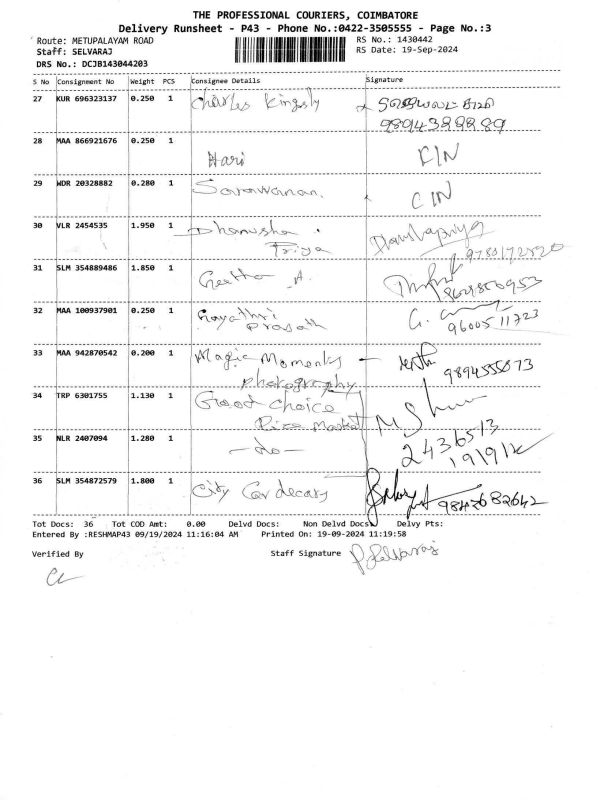 THE PROFESSIONAL COURIERS, COIMBATORE
Delivery Runsheet - P43 - Phone No.:0422-3505555 - Page No.:3
Route: METUPALAYAM ROAD RS No.: 1430442
Staff: SELVARAJ RS Date: 19-Sep-2024
DRS No.: DCJB143044203
S No Consignment No Weight PCS Consignee Details Signature
27 KUR 696323137 0.250 1 Charles Kingsly
9894388889
28 MAA 866921676 0.250 1 Hari
29 WDR 20328882 0.280 1 Saravanan. CIN
30 VLR 2454535 1.950 1 Dhanusha
Priya 9780172520
31 SLM 354889486 1.850 1 Geetha A.
32 MAA 100937901 0.250 1 Gayathri G.
Prasath 9600511723
33 MAA 942870542 0.200 1 Magic Moments -
photography 9894555073
34 TRP 6301755 1.130 1 Good choice
Market
35 NLR 2407094 1.280 1 - do - 2436513
19/9/24
36 SLM 354872579 1.800 1 City Car decars 9842682642
Tot Docs: 36 Tot COD Amt: 0.00 Delvd Docs: Non Delvd Docs: Delvy Pts:
Entered By :RESHMAP43 09/19/2024 11:16:04 AM Printed On: 19-09-2024 11:19:58
Verified By Staff Signature P. Selvaraj